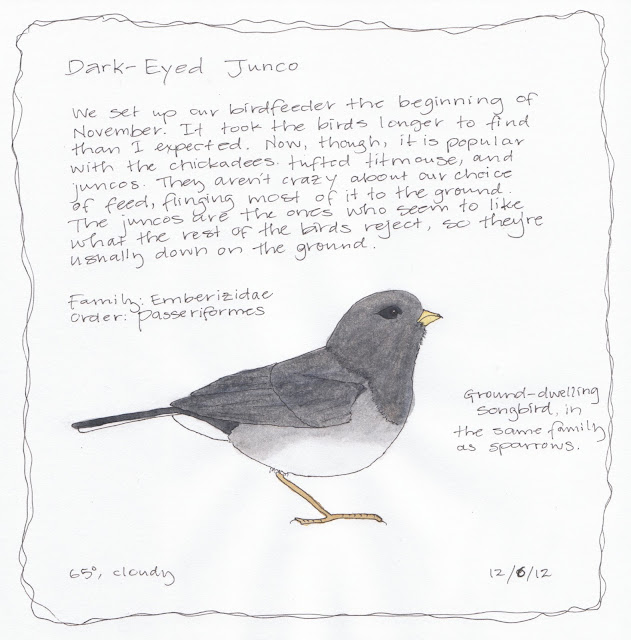 Dark-Eyed Junco
We set up our birdfeeder the beginning of
November. It took the birds longer to find
than I expected. Now, though, it is popular
with the chickadees. tufted titmouse, and
juncos. They aren't crazy about our choice
of feed, flinging most of it to the ground.
The juncos are the ones who seem to like
what the rest of the birds reject, so they're
usually down on the ground.
Family: Emberizidae
Order: Passeriformes
Ground-dwelling
songbird, in
the same family
as sparrows.
65°, cloudy
12/6/12